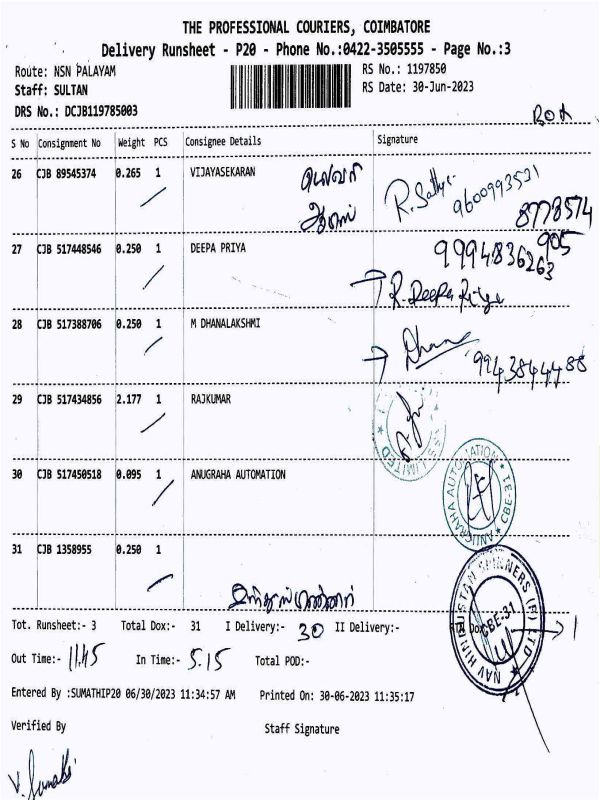 THE PROFESSIONAL COURIERS, COIMBATORE
Delivery Runsheet - P20 - Phone No.:0422-3505555 - Page No.:3
Route: NSN PALAYAM
RS No.: 1197850
Staff: SULTAN
RS Date: 30-Jun-2023
DRS No.: DCJB119785003
S No Consignment No Weight PCS Consignee Details Signature
26 CJB 89545374 0.265 1 VIJAYASEKARAN
R. Sathya
9600993531
8778574
905
27 CJB 517448546 0.250 1 DEEPA PRIYA
9994836263
R. Deepa Priya
28 CJB 517388706 0.250 1 M DHANALAKSHMI
Dhana
9943844488
29 CJB 517434856 2.177 1 RAJKUMAR
LIMITED
30 CJB 517450518 0.095 1 ANUGRAHA AUTOMATION
ANUGRAHA AUTOMATION CBE-31
31 CJB 1358955 0.250 1
NAV HINDUSTAN SPINNERS (P) LTD
CBE-31
Tot. Runsheet:- 3 Total Dox:- 31 I Delivery:- 30 II Delivery:- 1
Out Time:- 11.45 In Time:- 5.15 Total POD:-
Entered By :SUMATHIP20 06/30/2023 11:34:57 AM Printed On: 30-06-2023 11:35:17
Verified By Staff Signature
V. Sumathi